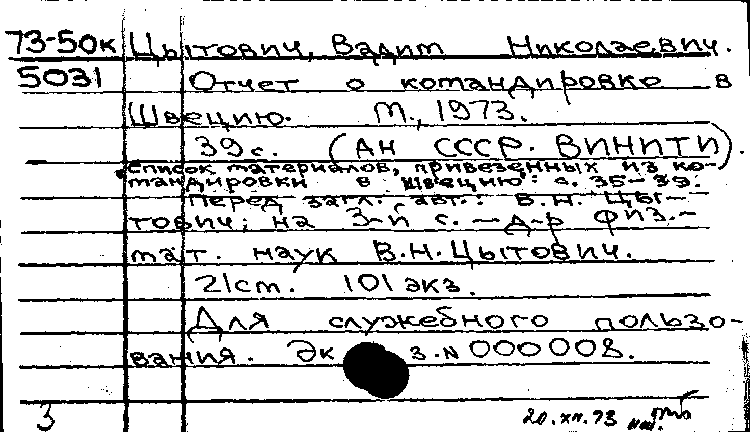 73-50к Цытович, Вадим Николаевич.
5031 Отчет о командировке в
Швецию. М., 1973.
39 с. (АН СССР. ВИНИТИ).
Список материалов, привезенных из ко-
мандировки в Швецию: с. 35-39.
Перед загл. авт.: В.Н. Цы-
тович; на 3-й с. - д-р физ.-
мат. наук В.Н. Цытович.
21 см. 101 экз.
Для служебного пользо-
вания. Экз. N 000008.
3 20.XII.73